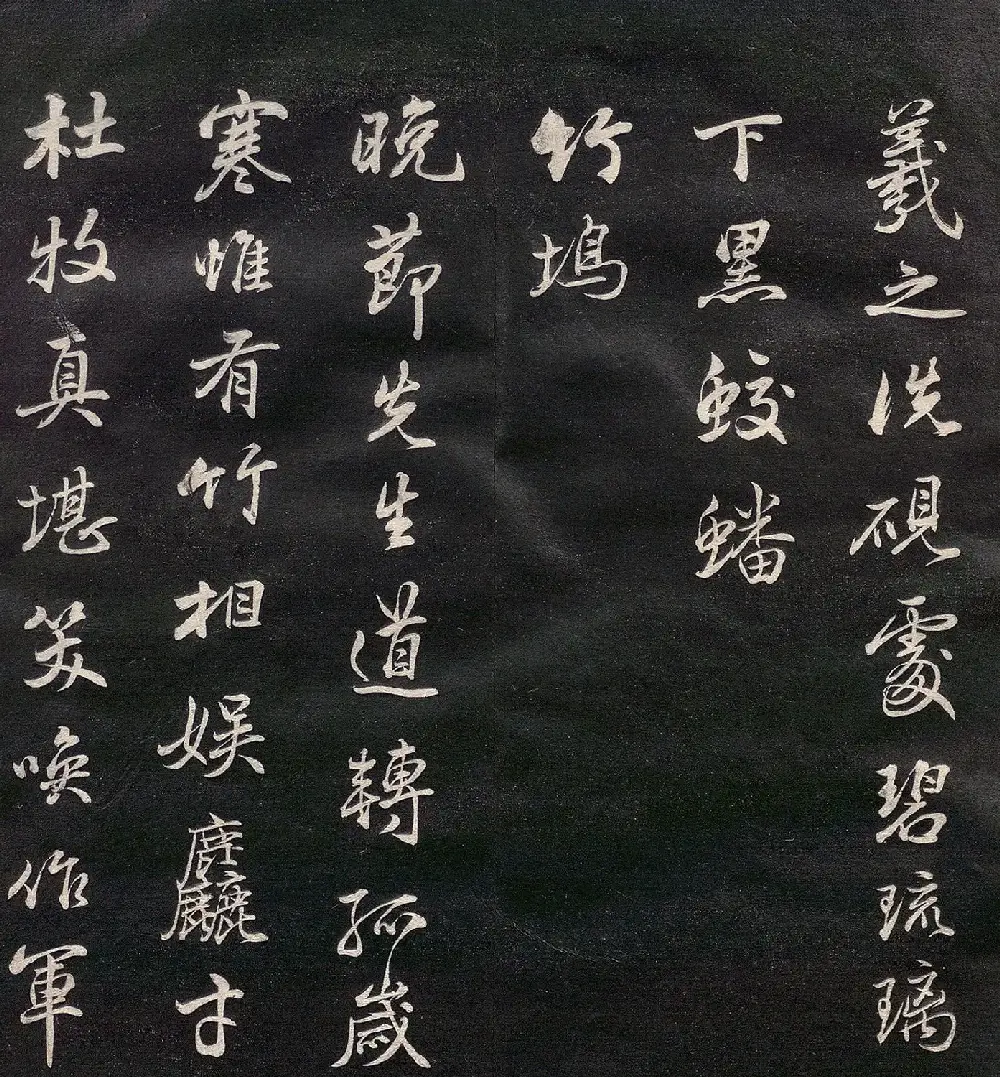 羲之洗硯處碧琉璃
下黑蛟蟠
竹塢
晚節先生道轉孤歲
寒惟有竹相娛麤才
杜牧真堪笑喚作軍